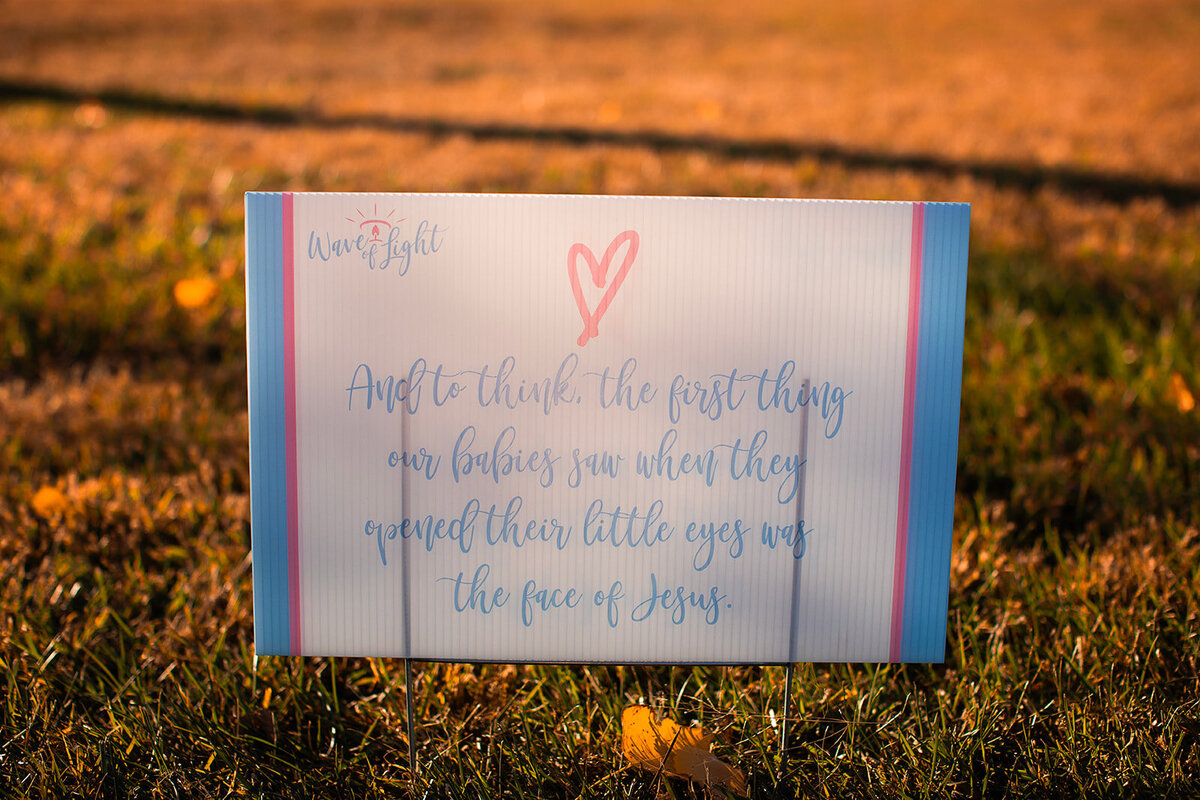 Wave of Light
And to think, the first thing
our babies saw when they
opened their little eyes was
the face of Jesus.